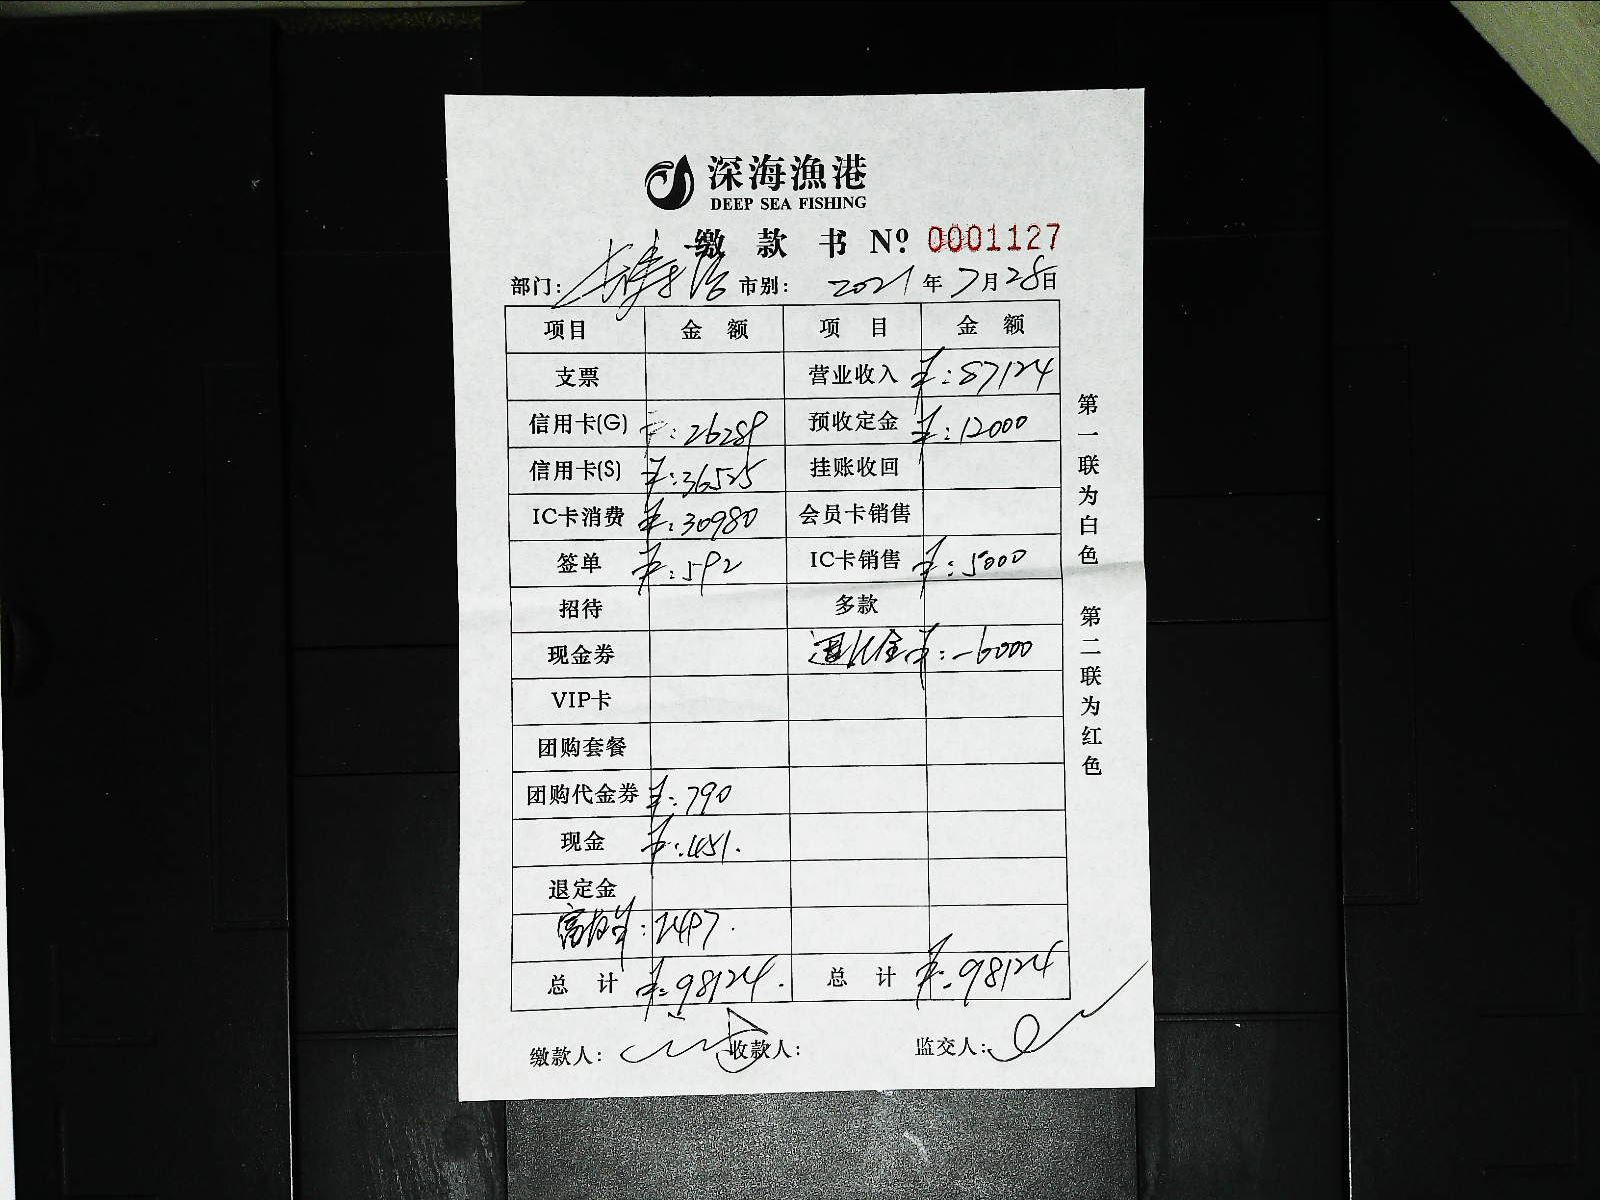 深海漁港
DEEP SEA FISHING
缴款书 Nº 0001127
部门: 市别: 2021年7月28日
项目 金额 项目 金额
支票 营业收入 ¥:87124
信用卡(G) ¥:26289 预收定金 ¥:12000
信用卡(S) ¥:36525 挂账收回
IC卡消费 ¥:30980 会员卡销售
签单 ¥:592 IC卡销售 ¥:5000
招待 多款
现金券 ¥:-6000
VIP卡
团购套餐
团购代金券 ¥:790
现金 ¥:451.
退定金
:2497.
总计 ¥:98124. 总计 ¥:98124
缴款人: 收款人: 监交人:
第一联为白色 第二联为红色